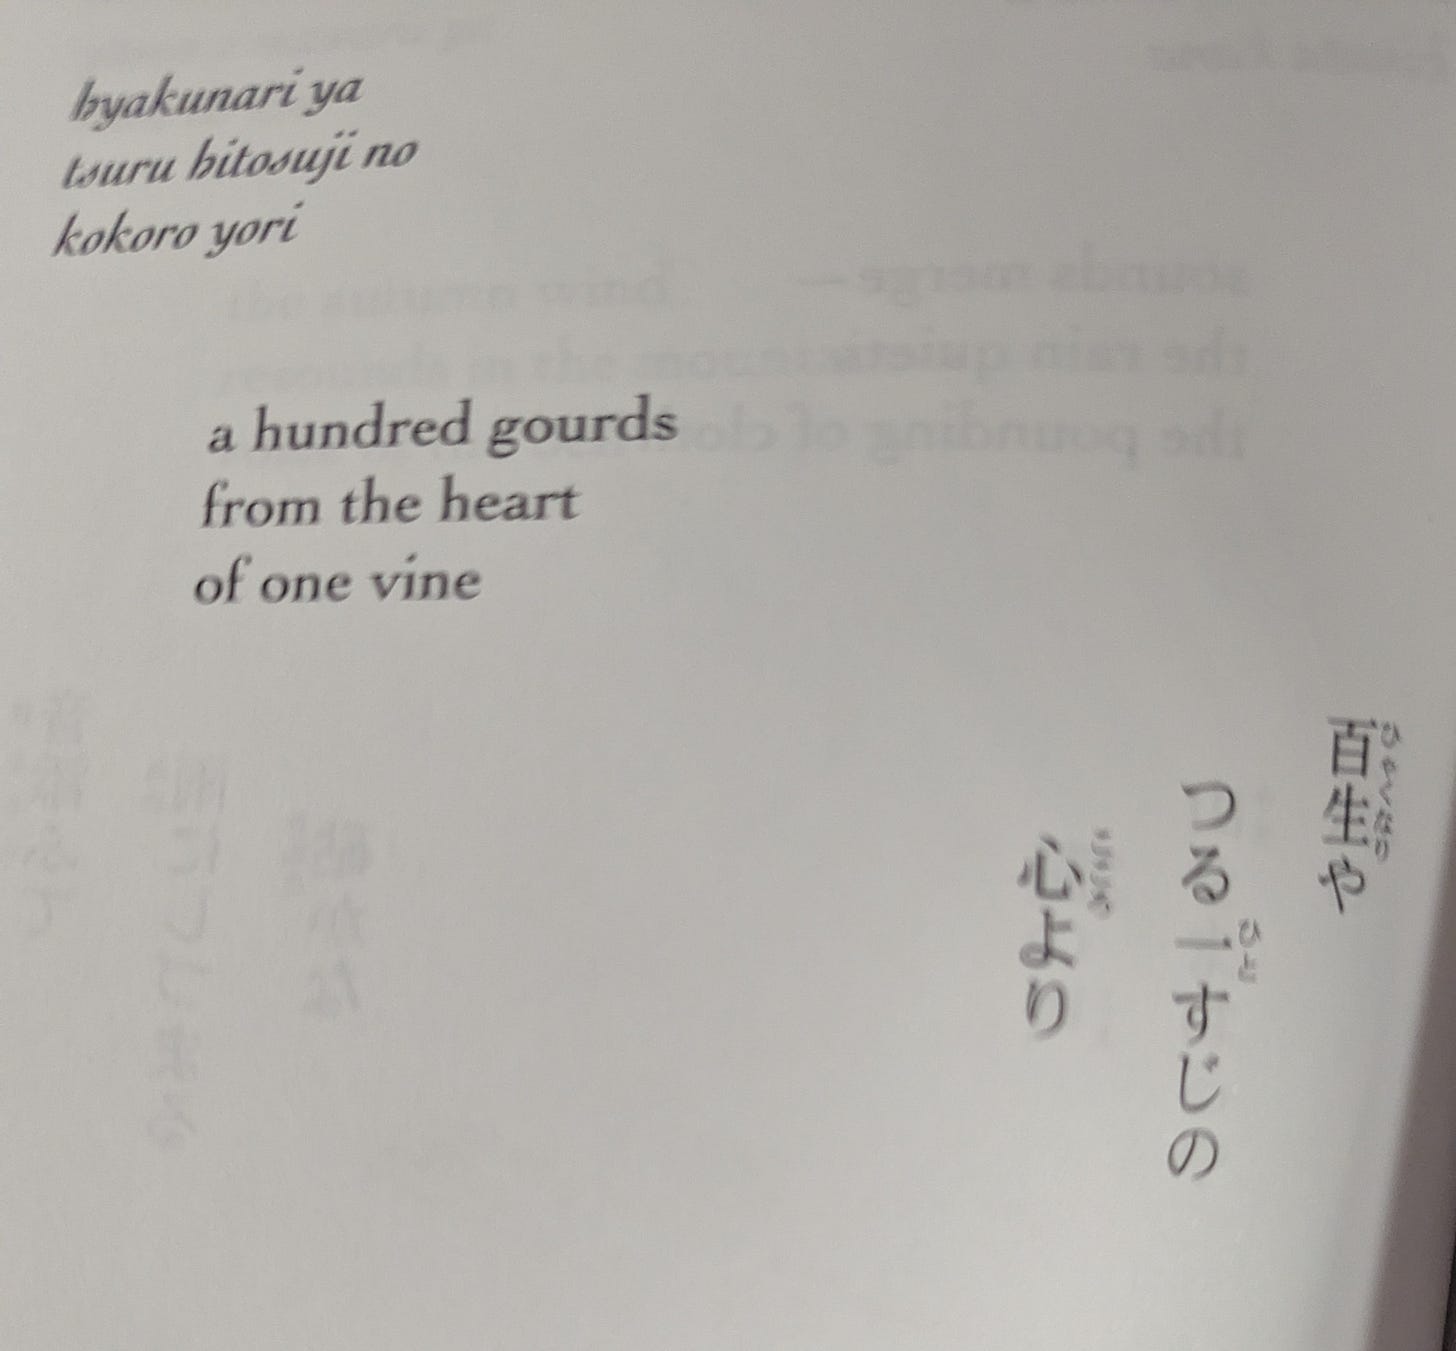 hyakunari ya
tsuru hitosuji no
kokoro yori
a hundred gourds
from the heart
of one vine
百生や
つる一すじの
心より